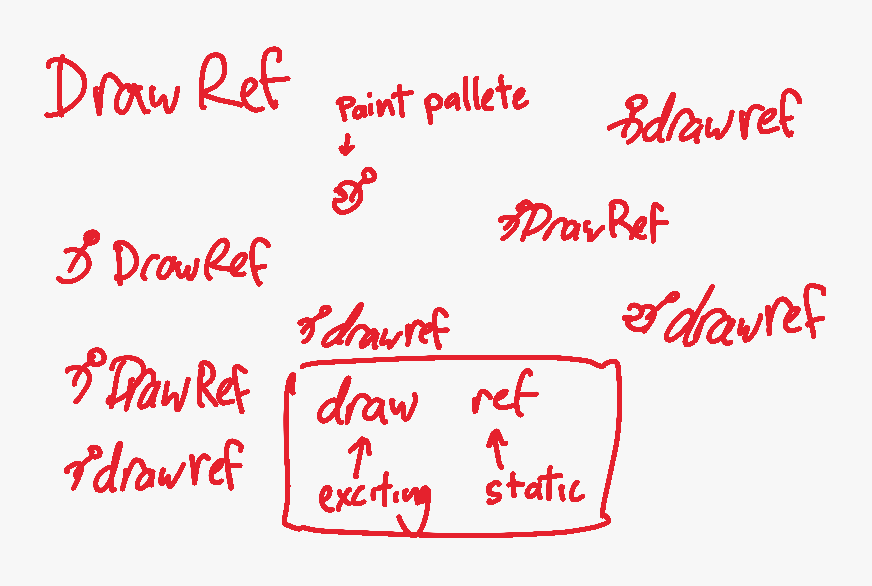 DrawRef
Paint pallete
drawref
DrawRef
DrawRef
drawref
drawref
DrawRef
drawref
draw ref
exciting static